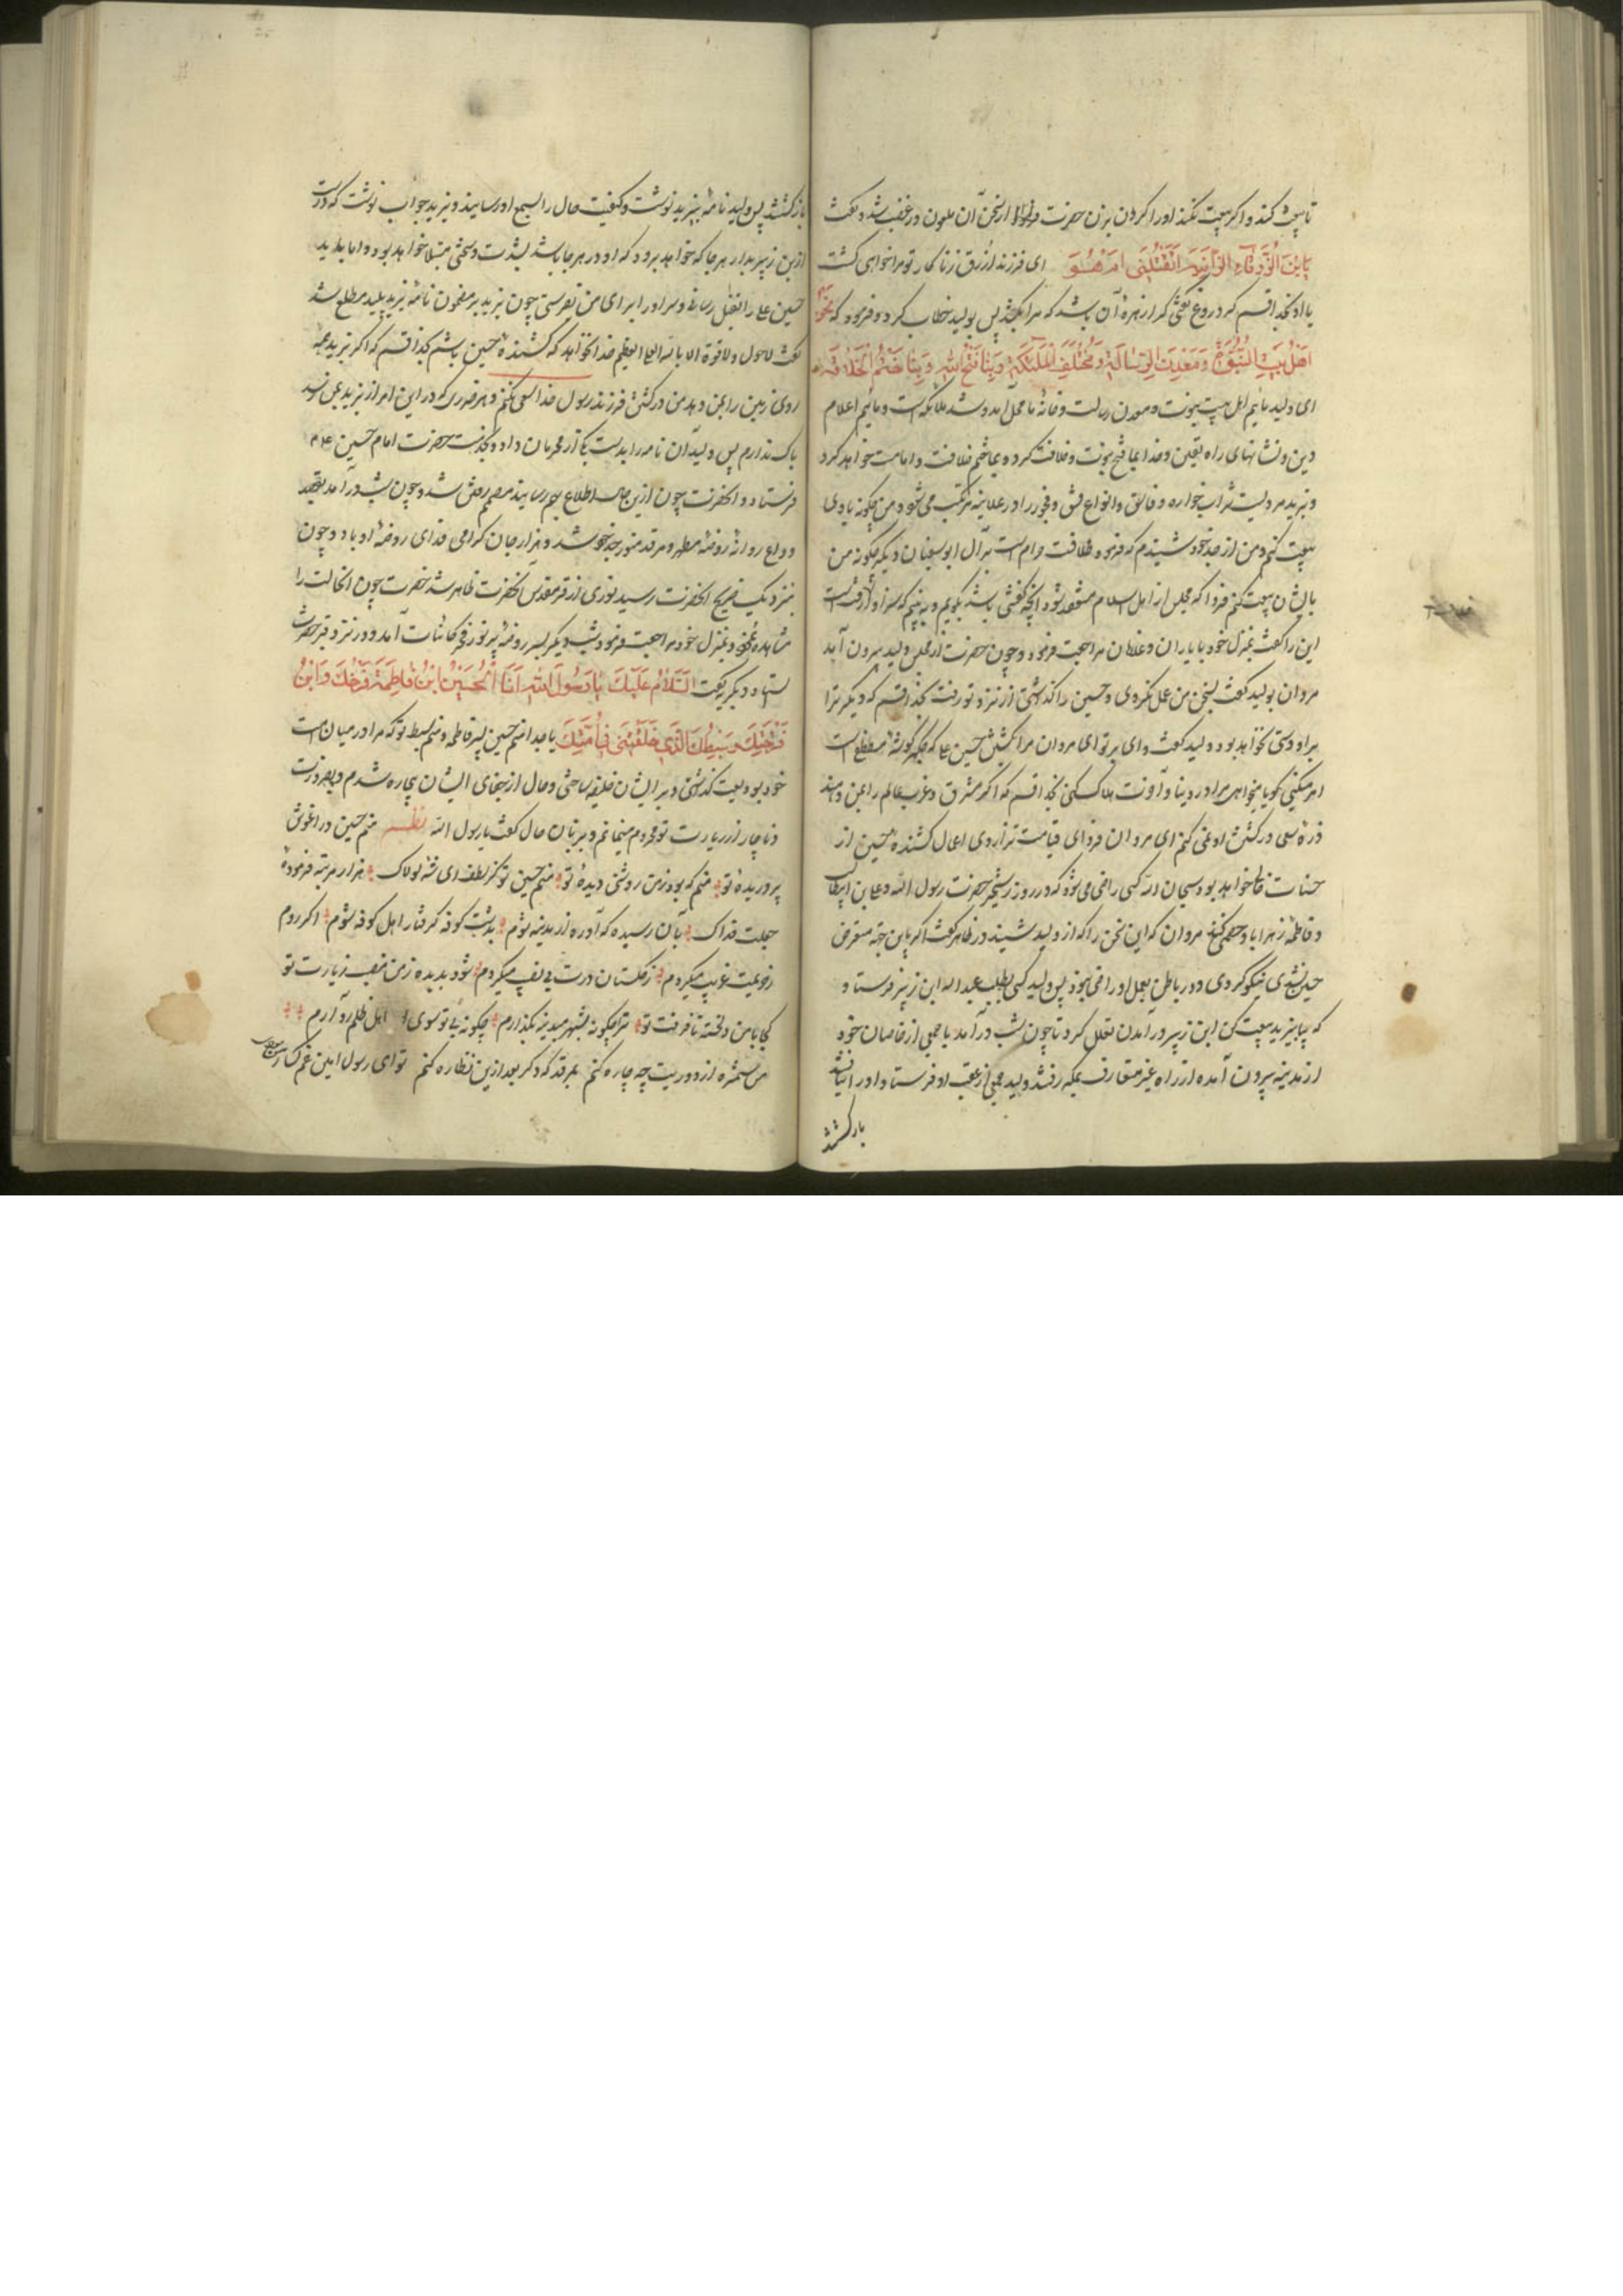 تا بیعت کند و اگر بیعت نکند او را گردن بزن حضرت از سخن آن ملعون در غضب شد و گفت
یَابْنَ الزَّرْقَاءِ الزَّانِیَةِ اَتَقْتُلُنِی اَمْ هُوَ ای فرزند ازرق زناکار تو مرا خواهی کشت
یا او بخدا قسم که دروغ گفتی کرا زهره آن باشد که مرا بکشد پس بولید خطاب کرد و فرمود که نَحْنُ
اَهْلُ بَیْتِ النُّبُوَّةِ وَمَعْدِنُ الرِّسَالَةِ وَمُخْتَلَفُ الْمَلٰئِکَةِ وَبِنَا فَتَحَ اللهُ وَبِنَا خَتَمَ الْخَلَافَةَ
ای ولید مائیم اهل بیت نبوت و معدن رسالت و خانه ما محل آمد و شد ملائکه است و مائیم اعلام
دین و نشانهای راه یقین و خدا بما فتح نبوت و خلافت کرد و بما ختم خلافت و امامت خواهد کرد
و یزید مردیست شراب خواره و فاسق و انواع فسق و فجور را در علانیه مرتکب می شود و من چگونه با وی
بیعت کنم و من از جد خود شنیدم که فرمود خلافت حرام است بر آل ابو سفیان دیگر چگونه من
با ایشان بیعت کنم فردا که مجلس از اهل اسلام منعقد شود آنچه گفتنی باشد بگویم و به بینیم که سزاوار خلافت است
این را گفت بمنزل خود با یاران و غلامان مراجعت فرمود و چون حضرت از مجلس ولید بیرون آمد
مروان بولید گفت بسخن من عمل نکردی و حسین را گذاشتی از نزد تو رفت بخدا قسم که دیگر ترا
بر او دستی نخواهد بود ولید گفت وای بر تو ای مروان مرا بکشتن حسین ع که جگر گوشه مصطفی است
امر میکنی گویا میخواهی مرا در دنیا و آخرت هلاک کنی بخدا قسم که اگر مشرق و مغرب عالم را بمن دهند
ذره سعی در کشتن او نمی کنم ای مروان فردای قیامت ترازوی اعمال کشنده حسین از
حسنات خالی خواهد بود سبحان الله کسی راضی می شود که در روز رستخیز حضرت رسول الله و علی بن ابیطالب
و فاطمه زهرا با او خصمی کنند مروان که این سخن را که از ولید شنید در ظاهر گفت اگر باین جهت متعرض
حسین نشدی نیکو کردی و در باطن بعمل او راضی نبود پس ولید کسی بطلب عبد الله ابن زبیر فرستاد
که بیا بیزید بیعت کن ابن زبیر در آمدن تعلل کرد تا چون شب در آمد با جمعی از خاصان خود
از مدینه بیرون آمده از راه غیر متعارف بمکه رفتند ولید جمعی از عقب او فرستاد او را نیافتند
باز گشتند
باز گشتند پس ولید نامه بیزید نوشت و کیفیت حال را بسمع او رسانید و یزید جواب نوشت که دست
از ابن زبیر بدار هر جا که خواهد برود که او در هر جا باشد بشدت و سختی مبتلا خواهد بود و اما باید
حسین علی را بقتل رسانی و سر او را برای من بفرستی چون بر مضمون نامه یزید پلید مطلع شد
گفت لا حول ولا قوة الا بالله العلی العظیم خدا نخواهد که کشنده حسین باشم بخدا قسم که اگر یزید همه
روی زمین را بمن دهد من در کشتن فرزند رسول خدا سعی نکنم و هر ضرری که در این امر از یزید بمن رسد
باک ندارم پس ولید آن نامه را بدست یکی از محرمان داد و بخدمت حضرت امام حسین ع
فرستاد و آنحضرت چون از این حال اطلاع بهم رسانید مصمم رفتن شد و چون شب در آمد بقصد
وداع روانه روضه مطهر و مرقد منور جد خود شد و هزار جان گرامی فدای روضه او باد و چون
بنزدیک ضریح آنحضرت رسید نوری از قبر مقدس آنحضرت ظاهر شد حضرت چون آنحالت را
مشاهده نمود بمنزل خود مراجعت فرمود شب دیگر بسر روضه پر نور فخر کائنات آمد و در نزد قبر حضرت
ایستاد و بگریه گفت اَلسَّلَامُ عَلَیْکَ یَا رَسُولَ اللهِ اَنَا الْحُسَیْنُ ابْنُ فَاطِمَةَ فَرْخُکَ وَابْنُ
فَرْخَتِکَ وَسِبْطُکَ الَّذِی خَلَّفْتَنِی فِی اُمَّتِکَ یا جدا منم حسین پسر فاطمه و منم سبط تو که مرا در میان امت
خود بودیعت گذاشتی و بر ایشان خلیفه ساختی و حال از جفای ایشان بیچاره شدم و بضرورت
و ناچار از زیارت تو محروم میمانم و بزبان حال گفت یا رسول الله نظم منم حسین در آغوش
پروریده تو منم که بود ز من روشنی دیده تو منم حسین تو کز لطف ای شه لولاک هزار مرتبه فرموده
جعلت فداک بآن رسیده که آواره از مدینه شوم بدشت کوفه گرفتار اهل کوفه شوم اگر روم
ز وطنت غریب میگردم ز گلستان درت بی نصیب میگردم شود بدیده ز من نصیب زیارت تو
کجا بامن دلخسته تا فرقت تو ترا چگونه بشهر مدینه بگذارم چگونه بی تو سوی اهل ظلم رو آرم
من ستمزده از دوریت چه چاره کنم بمرقد که دگر بعد ازین نظاره کنم تو ای رسول امین غم گسار